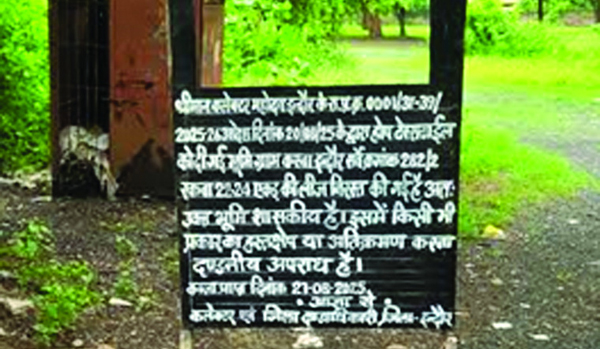 श्रीमान कलेक्टर महोदय इन्दौर के रा.प्र.क्र. 0001/अ-39/
2025-26 आदेश दिनांक 20/08/25 के द्वारा होप टेक्सटाईल
को दी गई भूमि ग्राम कस्बा इन्दौर सर्वे क्रमांक 282/2
रकबा 22-24 एकड़ की लीज निरस्त की गई है अतः
उक्त भूमि शासकीय है। इसमें किसी भी
प्रकार का हस्तक्षेप या अतिक्रमण करना
दण्डनीय अपराध है।
कब्जा प्राप्त दिनांक 21-08-2025
आज्ञा से
कलेक्टर एवं जिला दण्डाधिकारी, जिला-इन्दौर